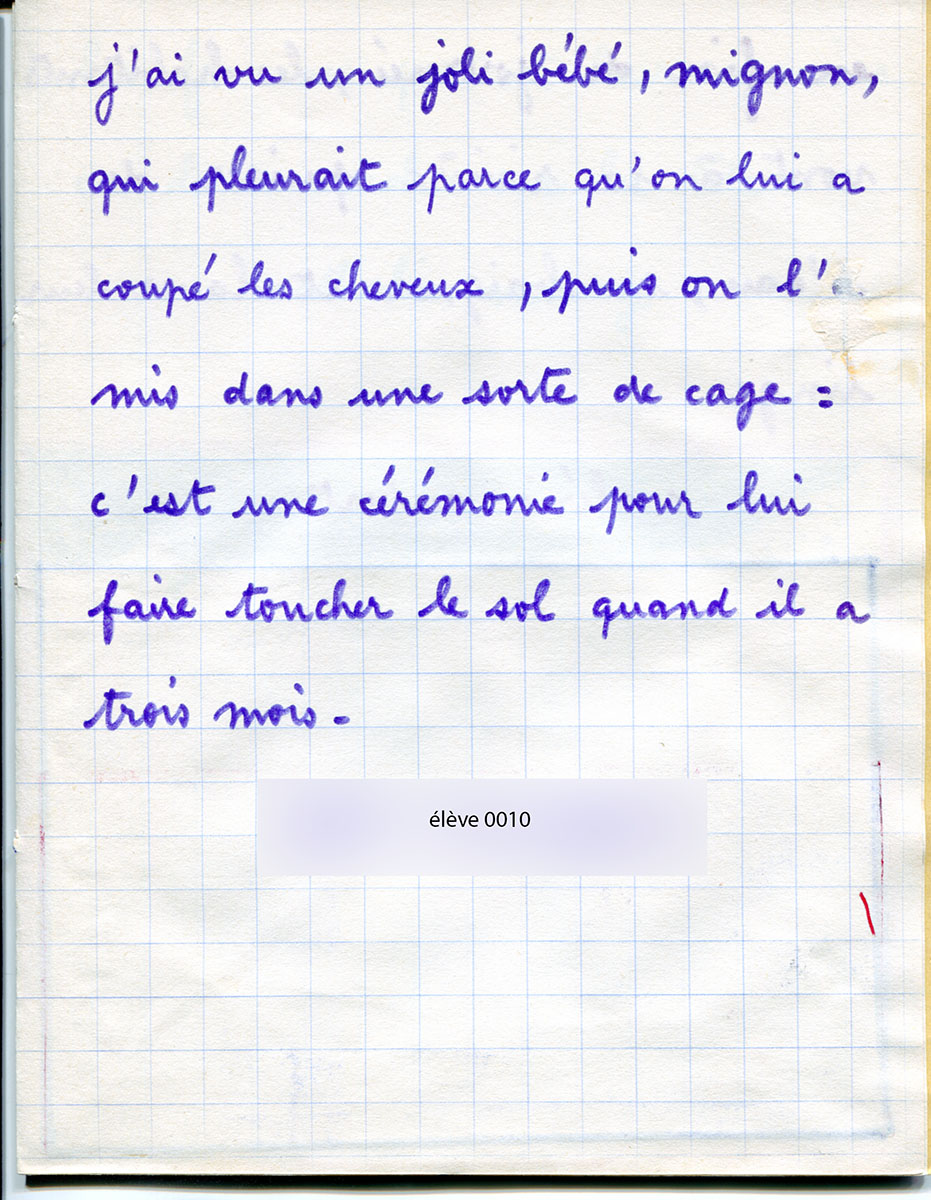 j'ai vu un joli bébé, mignon,
qui pleurait parce qu'on lui a
coupé les cheveux, puis on l'a
mis dans une sorte de cage :
c'est une cérémonie pour lui
faire toucher le sol quand il a
trois mois.
élève 0010